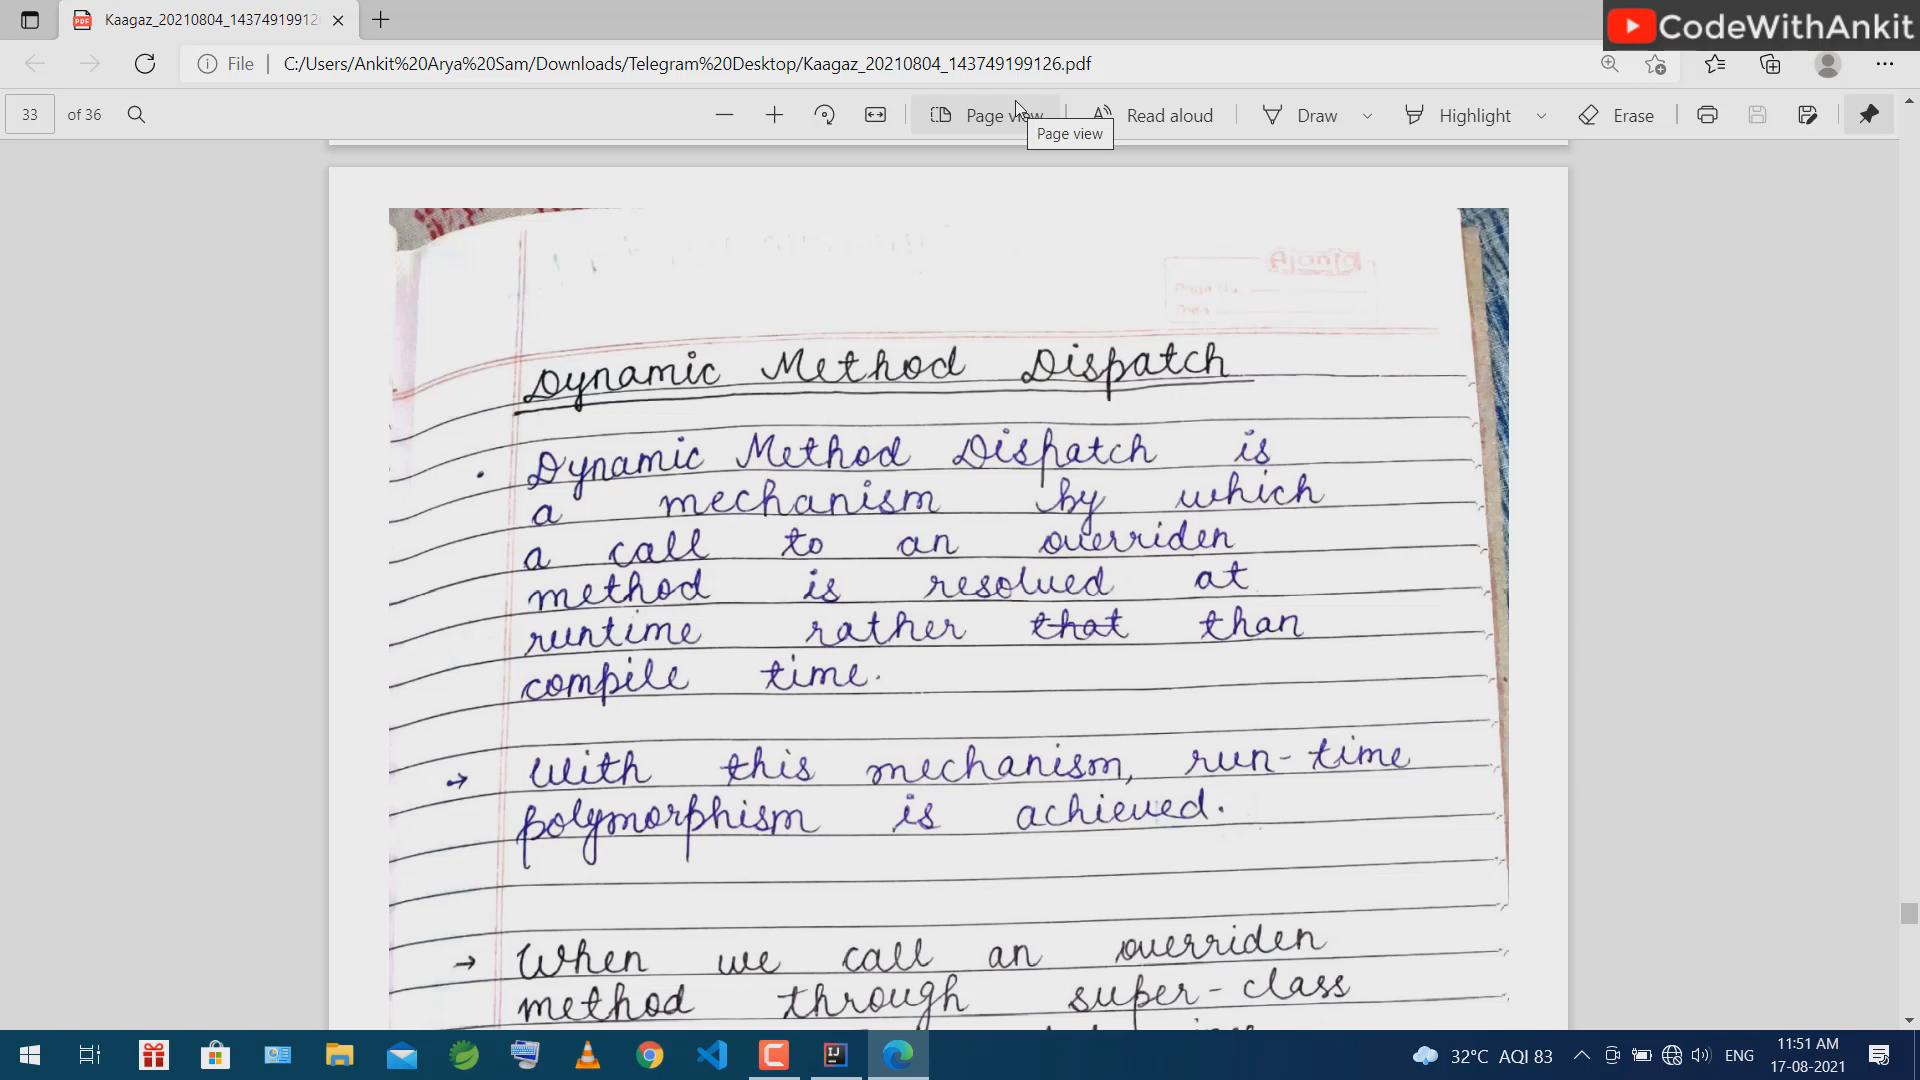 Kaagaz_20210804_14374919912
CodeWithAnkit
File
C:/Users/Ankit%20Arya%20Sam/Downloads/Telegram%20Desktop/Kaagaz_20210804_143749199126.pdf
33 of 36
Page view
Read aloud
Draw
Highlight
Erase
Page view
Ajanta
Dynamic Method Dispatch
• Dynamic Method Dispatch is
a mechanism by which
a call to an overriden
method is resolved at
runtime rather that than
compile time.
→ With this mechanism, run-time
polymorphism is achieved.
→ When we call an overriden
method through super-class
32°C AQI 83
ENG
11:51 AM
17-08-2021